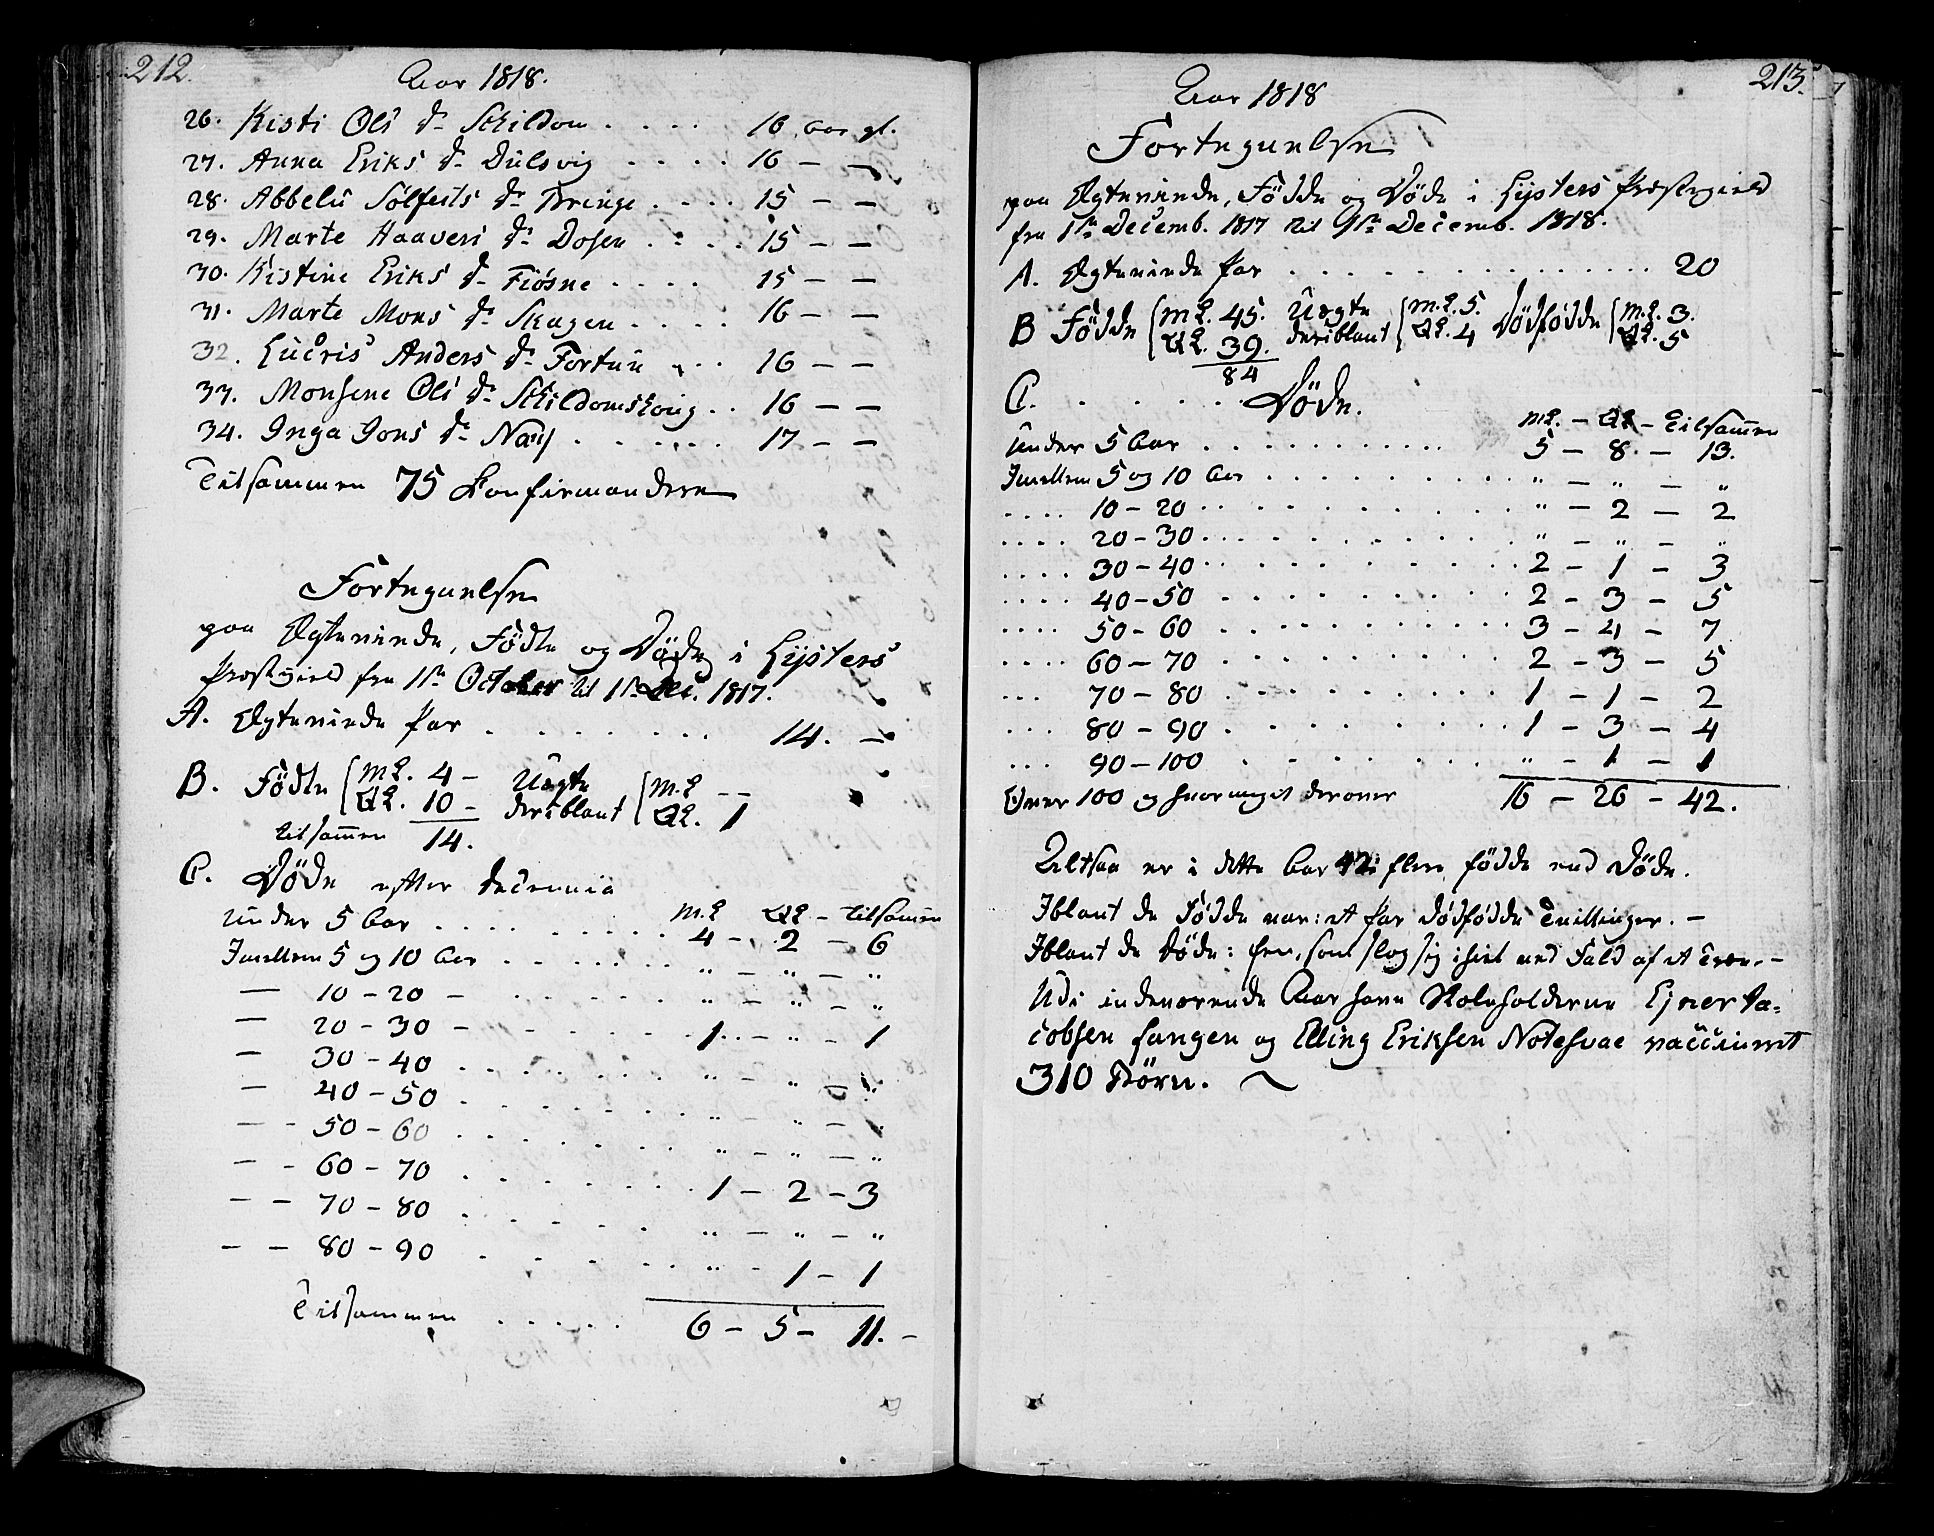 212.
Aar 1818.
26. Kisti Ols dr Schildom . . . . 16 aar gl.
27. Anna Eriks dr Dulsvig . . . . 16 — —
28. Abbelu Sølfests dr Bringe . . . . 15 — —
29. Marte Haavers dr Dosen . . . . 15 — —
30. Kistine Eriks dr Fiøsne . . . . 15 — —
31. Marte Mons dr Skagen . . . . 16 — —
32. Lucris Anders dr Fortun . . . 16 — —
33. Monsene Ols dr Schildomshoug . . 16 — —
34. Inga Jons dr Næs . . . . . 17 — —
Tilsammen 75 Confirmandere
Fortegnelse
paa Egteviede, Fødte og Døde i Lysters
Præstegield fra 1ste October til 1ste Dec. 1817.
A. Egteviede Par . . . . . . . 14. —
B. Fødte { M.K. 4 — Uægte { M.K — —
Q.K. 10 — deriblant Q.K. 1
tilsammen 14.
C. Døde efter Decennia
M.K Q.K — tilsammen
Under 5 Aar . . . . . . . . 4 — 2 — 6
Imellem 5 og 10 Aar . . . . . . " — " — "
— 10 — 20 — . . . . . . " — " — "
— 20 — 30 — . . . . . . 1 . . — " — 1
— 30 — 40 . . . . . . . " — " — "
— 40 — 50 . . . . . . . " — " — "
— - 50 — 60 . . . . . . . " — " — "
— - 60 — 70 . . . . . . . 1 — 2 — 3
— — 70 — 80 . . . . . . " — " — "
— — 80 — 90 . . . . . . " — 1 — 1
Tilsammen . . . . . 6 — 5 — 11. —
213.
Aar 1818
Fortegnelse
paa Egteviede, Fødde og Døde i Lysters Præstegield
fra 1ste Decemb. 1817 til 1ste Decemb. 1818.
A. Egteviede Par . . . . . . . . . . . . . . 20
B Fødde { M.K. 45. Uægte { M.K. 5. Dødfødde { M.K. 3.
Q.K. 39. deriblant Q.K. 4 Q.K. 5
84
C. . . . . . . Døde.
M.K. — Q.K — Tilsammen
Under 5 Aar . . . . . . . . . . 5 — 8. — 13.
Imellem 5 og 10 Aar . . . . . . . . . " — " — "
. . . . 10 — 20 . . . . . . . . . . " — 2 — 2
. . . . 20 — 30 . . . . . . . . . . " — " — "
. . . . 30 — 40 . . . . . . . . . . 2 — 1 — 3
. . . . 40 — 50 . . . . . . . . . . 2 — 3 — 5
. . . . 50 - 60 . . . . . . . . . . 3 — 4 — 7
. . . . 60 — 70 . . . . . . . . . . 2 — 3 — 5
. . . 70 — 80 . . . . . . . . . . 1 — 1 — 2
. . . 80 — 90 . . . . . . . . . . 1 — 3 — 4
. . . 90 — 100 . . . . . . . . . " — 1 — 1
Over 100 og hvormeget derover 16 — 26 — 42.
Altsaa er i dette Aar 42 flere fødde end Døde.
Iblant de Fødde var: et Par dødfødde Tvillinger. —
Iblant de Døde: een, som slog sig ihiel ved Fald af et Træe. —
Udi indeværende Aar have Koleholderne Ejner Ja-
cobsen fangen og Elling Eriksen Notesvae vaccineret
310 Børn.